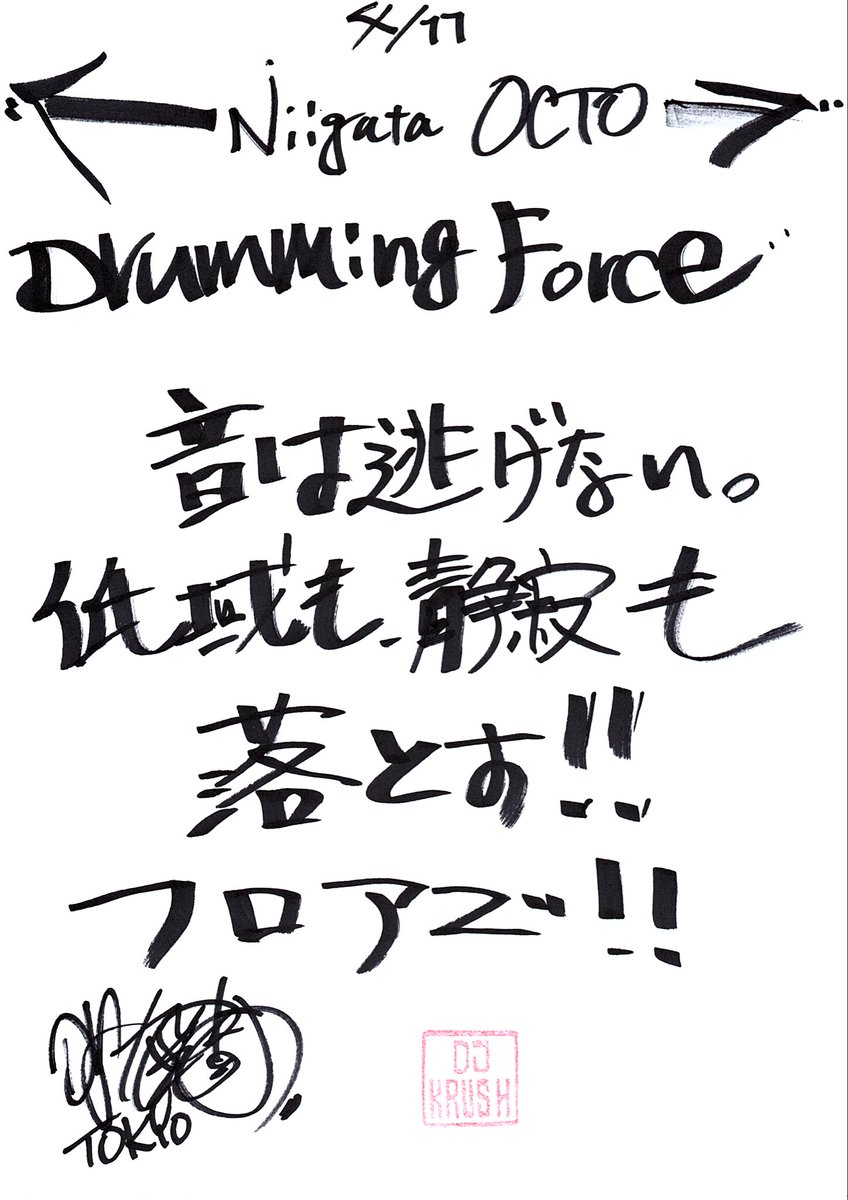 4/17
Niigata OCTO
Drumming Force
音は逃げない。
低域も、静寂も
落とす!!
フロアで!!
TOKYO
DJ
KRUSH